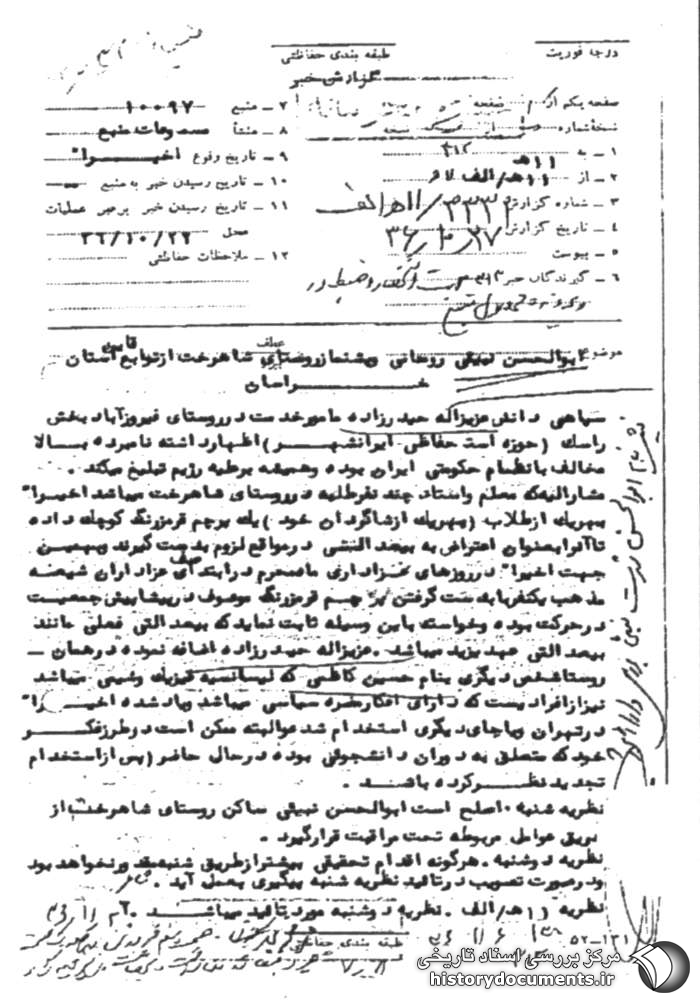 درجه فوریت
طبقه بندی حفاظتی
گزارش خبر
صفحه یکم از صفحه
نسخه شماره از نسخه
۱ ـ به ۳۱۲
۲ ـ از ۱۱ هـ/الف
۳ ـ شماره گزارش
۴ ـ تاریخ گزارش
۵ ـ پیوست
۶ ـ گیرندگان خبر
۷ ـ منبع ۱۰۰۹۷
۸ ـ منشأ مسموعات منبع
۹ ـ تاریخ وقوع اخیراً
۱۰ ـ تاریخ رسیدن خبر به منبع
۱۱ ـ تاریخ رسیدن خبر برهبر عملیات
محل ۳۶/۱۰/۲۷
۱۲ ـ ملاحظات حفاظتی
موضوع ابوالحسن نبیئی روحانی وپیشنمازروستای شاهرخت ازتوابع استان
خراسان
سپاهی دانش عزیزاله حیدرزاده مامورخدمت درروستای فیروزآباد بخش
راسك (حوزه استحفاظی ایرانشهر) اظهارداشته نامبرده بالا
مخالف بانظام حکومتی ایران بوده وهمیشه برعلیه رژیم تبلیغ میکند .
مشارالیه که معلم واستاد چند نفرطلبه درروستای شاهرخت میباشد اخیرا"
بهریك ازطلاب (بهریك ازشاگردان خود) یك پرچم قرمزرنگ کوچك داده
تاآنرابعنوان اعتراض به بیعدالتی درمواقع لزوم بدست گیرند وبهمین
جهت اخیرا" درروزهای عزاداری ماه محرم درابتدای صف عزاداران شیعه
مذهب یکنفربا بدست گرفتن پرچم قرمزرنگ موصوف درپیشاپیش جمعیت
درحرکت بوده وخواسته باین وسیله ثابت نماید که بیعدالتی فعلی مانند
بیعدالتی عهد یزید میباشد . عزیزاله حیدرزاده اضافه نموده درهمان ـ
روستاشخص دیگری بنام حسین کاظمی که لیسانسیه فیزیك وشیمی میباشد
نیزازافرادیست که دارای افکارمضره سیاسی میباشد ویادشده اخیرا"
درتهران ویاجای دیگری استخدام شده والبته ممکن است درطرزفکر
خود که متعلق به دوران دانشجوئی بوده درحال حاضر (پس ازاستخدام
تجدیدنظرکرده باشد .
نظریه شنبه . اصلح است ابوالحسن نبیئی ساکن روستای شاهرخت از
طریق عوامل مربوطه تحت مراقبت قرارگیرد .
نظریه دوشنبه . هرگونه اقدام تحقیقی بیشترازطریق شنبه مقدورنخواهد بود
ودرصورت تصویب درتائید نظریه شنبه پیگیری بعمل آید .
نظریه ۱۱هـ/الف . نظریه دوشنبه مورد تائید میباشد .
طبقه بندی حفاظتی
۵۲-۱۲۱
مرکز بررسی اسناد تاریخی
historydocuments.ir